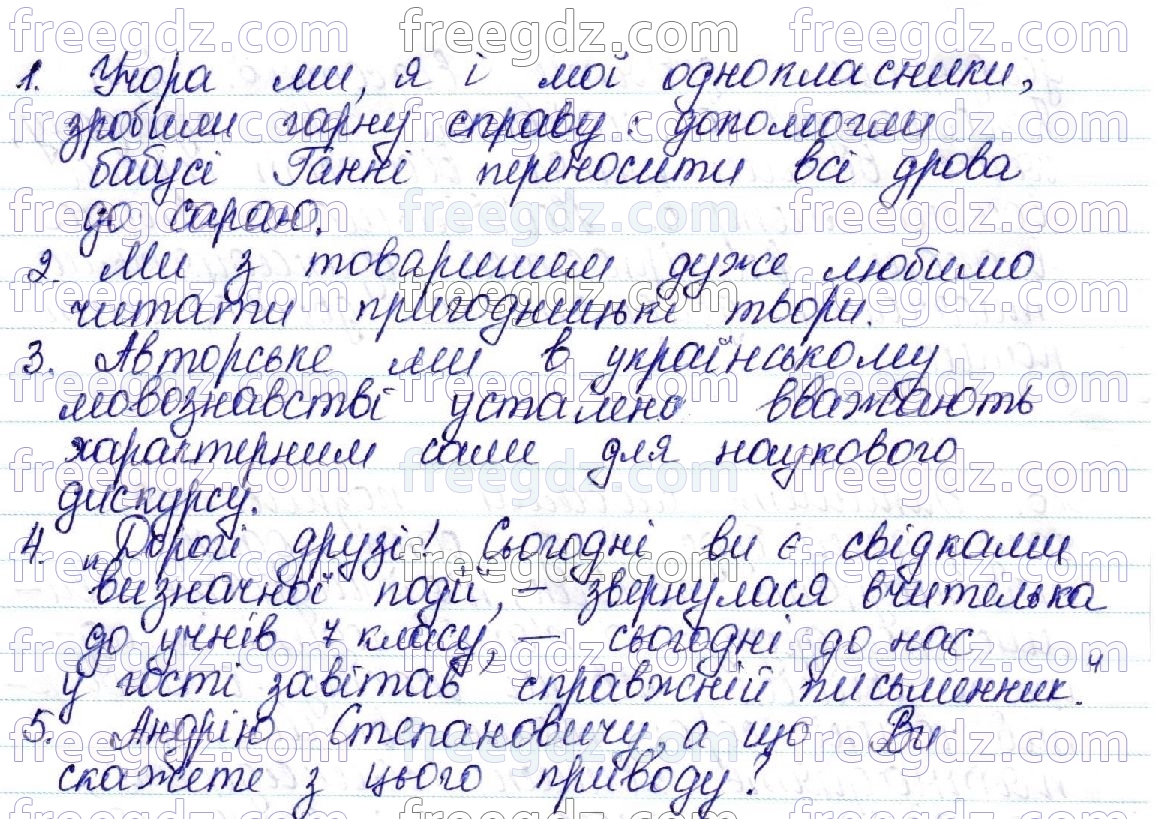 1. Учора ми, я і мої однопласники,
зробили гарну справу: допомогли
бабусі Ганні переносити всі дрова
до сараю.
2. Ми з товаришем дуже любимо
читати пригодницькі твори.
3. Авторське ми в українському
мовознавстві усталено вважають
характерним саме для наукового
дискурсу.
4. „Дорогі друзі! Сьогодні ви є свідками
визначної події", – звернулася вчителька
до учнів 7 класу, – сьогодні до нас
у гості завітав справжній письменник."
5. Андрію Степановичу, а що Ви
скажете з цього приводу?